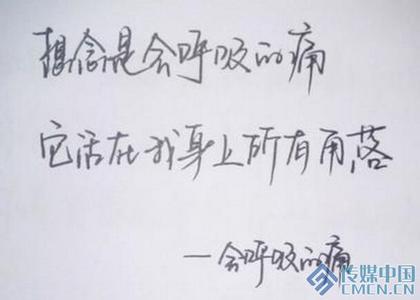 想念是会呼吸的痛
它活在我身上所有角落
—会呼吸的痛
传媒中国
CMCN.CN